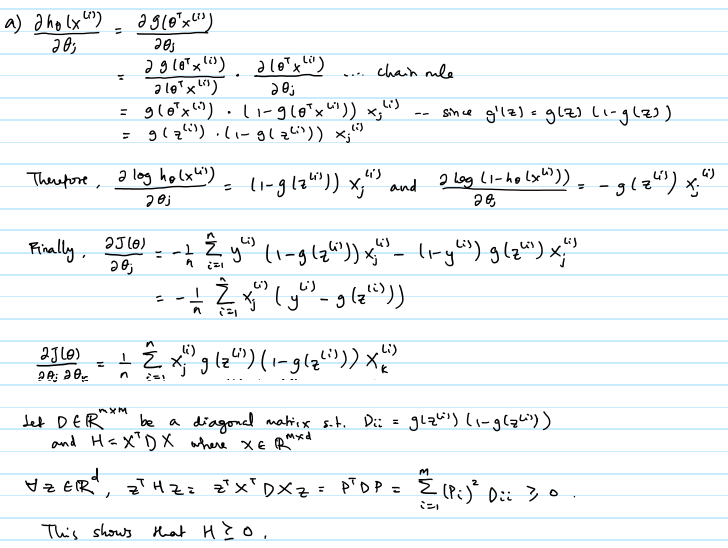 a) ∂hθ(x⁽ⁱ⁾)/∂θj = ∂g(θᵀx⁽ⁱ⁾)/∂θj
= ∂g(θᵀx⁽ⁱ⁾)/∂(θᵀx⁽ⁱ⁾) · ∂(θᵀx⁽ⁱ⁾)/∂θj .... chain rule
= g(θᵀx⁽ⁱ⁾) · (1-g(θᵀx⁽ⁱ⁾)) xj⁽ⁱ⁾ -- since g'(z) = g(z) (1-g(z))
= g(z⁽ⁱ⁾) · (1-g(z⁽ⁱ⁾)) xj⁽ⁱ⁾
Therefore, ∂log hθ(x⁽ⁱ⁾)/∂θj = (1-g(z⁽ⁱ⁾)) xj⁽ⁱ⁾ and ∂log(1-hθ(x⁽ⁱ⁾))/∂θj = -g(z⁽ⁱ⁾) xj⁽ⁱ⁾
Finally, ∂J(θ)/∂θj = -1/n Σᵢ₌₁ⁿ y⁽ⁱ⁾ (1-g(z⁽ⁱ⁾)) xj⁽ⁱ⁾ - (1-y⁽ⁱ⁾) g(z⁽ⁱ⁾) xj⁽ⁱ⁾
= -1/n Σᵢ₌₁ⁿ xj⁽ⁱ⁾ (y⁽ⁱ⁾ - g(z⁽ⁱ⁾))
∂J(θ)/∂θj ∂θk = 1/n Σᵢ₌₁ⁿ xj⁽ⁱ⁾ g(z⁽ⁱ⁾)(1-g(z⁽ⁱ⁾)) xk⁽ⁱ⁾
Let D ∈ ℝᵐˣᵐ be a diagonal matrix s.t. Dii = g(z⁽ⁱ⁾) (1-g(z⁽ⁱ⁾))
and H = XᵀDX where X ∈ ℝᵐˣᵈ
∀z ∈ ℝᵈ, zᵀHz = zᵀXᵀDXz = PᵀDP = Σᵢ₌₁ᵐ (Pi)² Dii ≥ 0.
This shows that H ≥ 0.